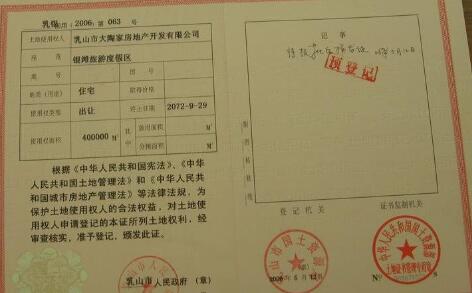 (2006) 第 063 号
土地使用权人 乳山市大陶家房地产开发有限公司
座落 银滩旅游度假区
地号 图号
地类(用途) 住宅 取得价格
使用权类型 出让 终止日期 2072-9-29
使用权面积 400000 M² 其中 独用面积 M²
分摊面积 M²
根据《中华人民共和国宪法》、《中华
人民共和国土地管理法》和《中华人民共
和国城市房地产管理法》等法律法规,为
保护土地使用权人的合法权益,对土地使
用权人申请登记的本证所列土地权利,经
审查核实,准予登记,颁发此证。
乳山市人民政府 (章)
记事
预登记
登记机关
证书监制机关